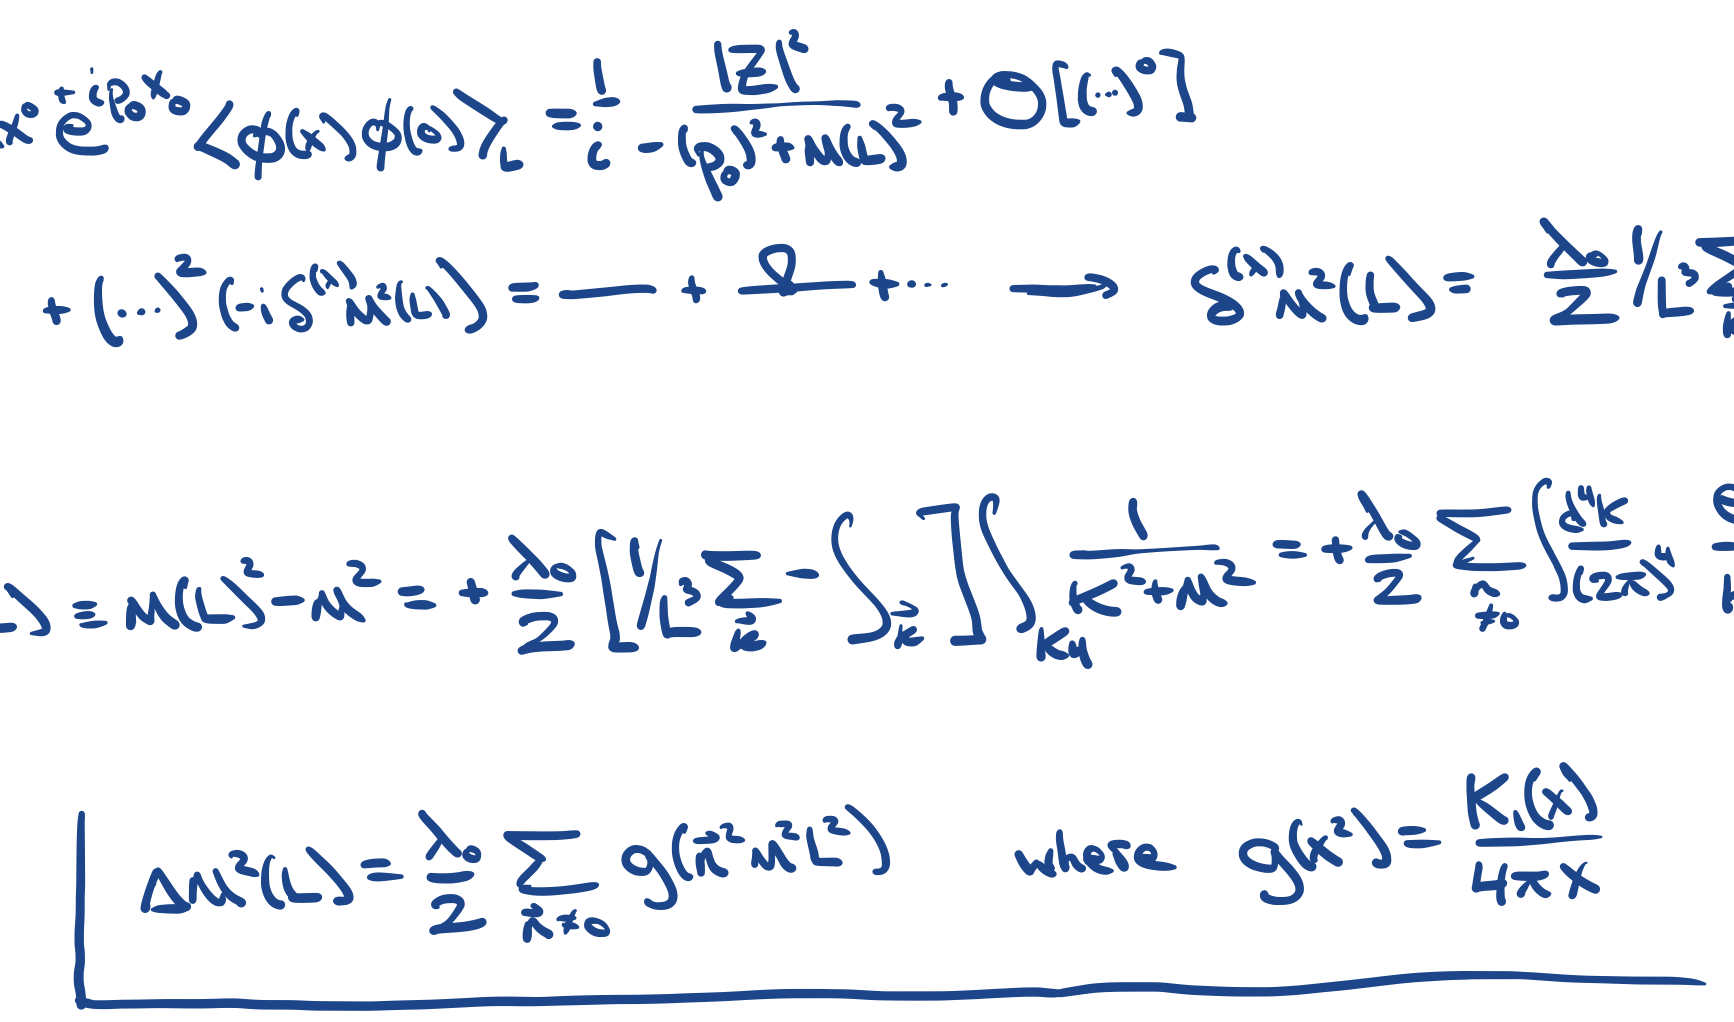 x⁰ e^{+ip₀x₀} ⟨ϕ(x)ϕ(0)⟩_L = 1/i |Z|²/(-(p₀)² + M(L)²) + O[(···)⁰]
+ (···)² (-i δ^{(x)}M²(L)) = — + + ··· ⟶ δ^{(x)}M²(L) = λ₀/2 1/L³ Σ
L) ≡ M(L)² - M² = + λ₀/2 [1/L³ Σ_{k⃗} - ∫_{k⃗}] ∫_{k₄} 1/(k² + M²) = + λ₀/2 Σ_{n⃗≠0} ∫ d⁴k/(2π)⁴
ΔM²(L) = λ₀/2 Σ_{n⃗≠0} g(n⃗²M²L²) where g(x²) = K₁(x)/4πx